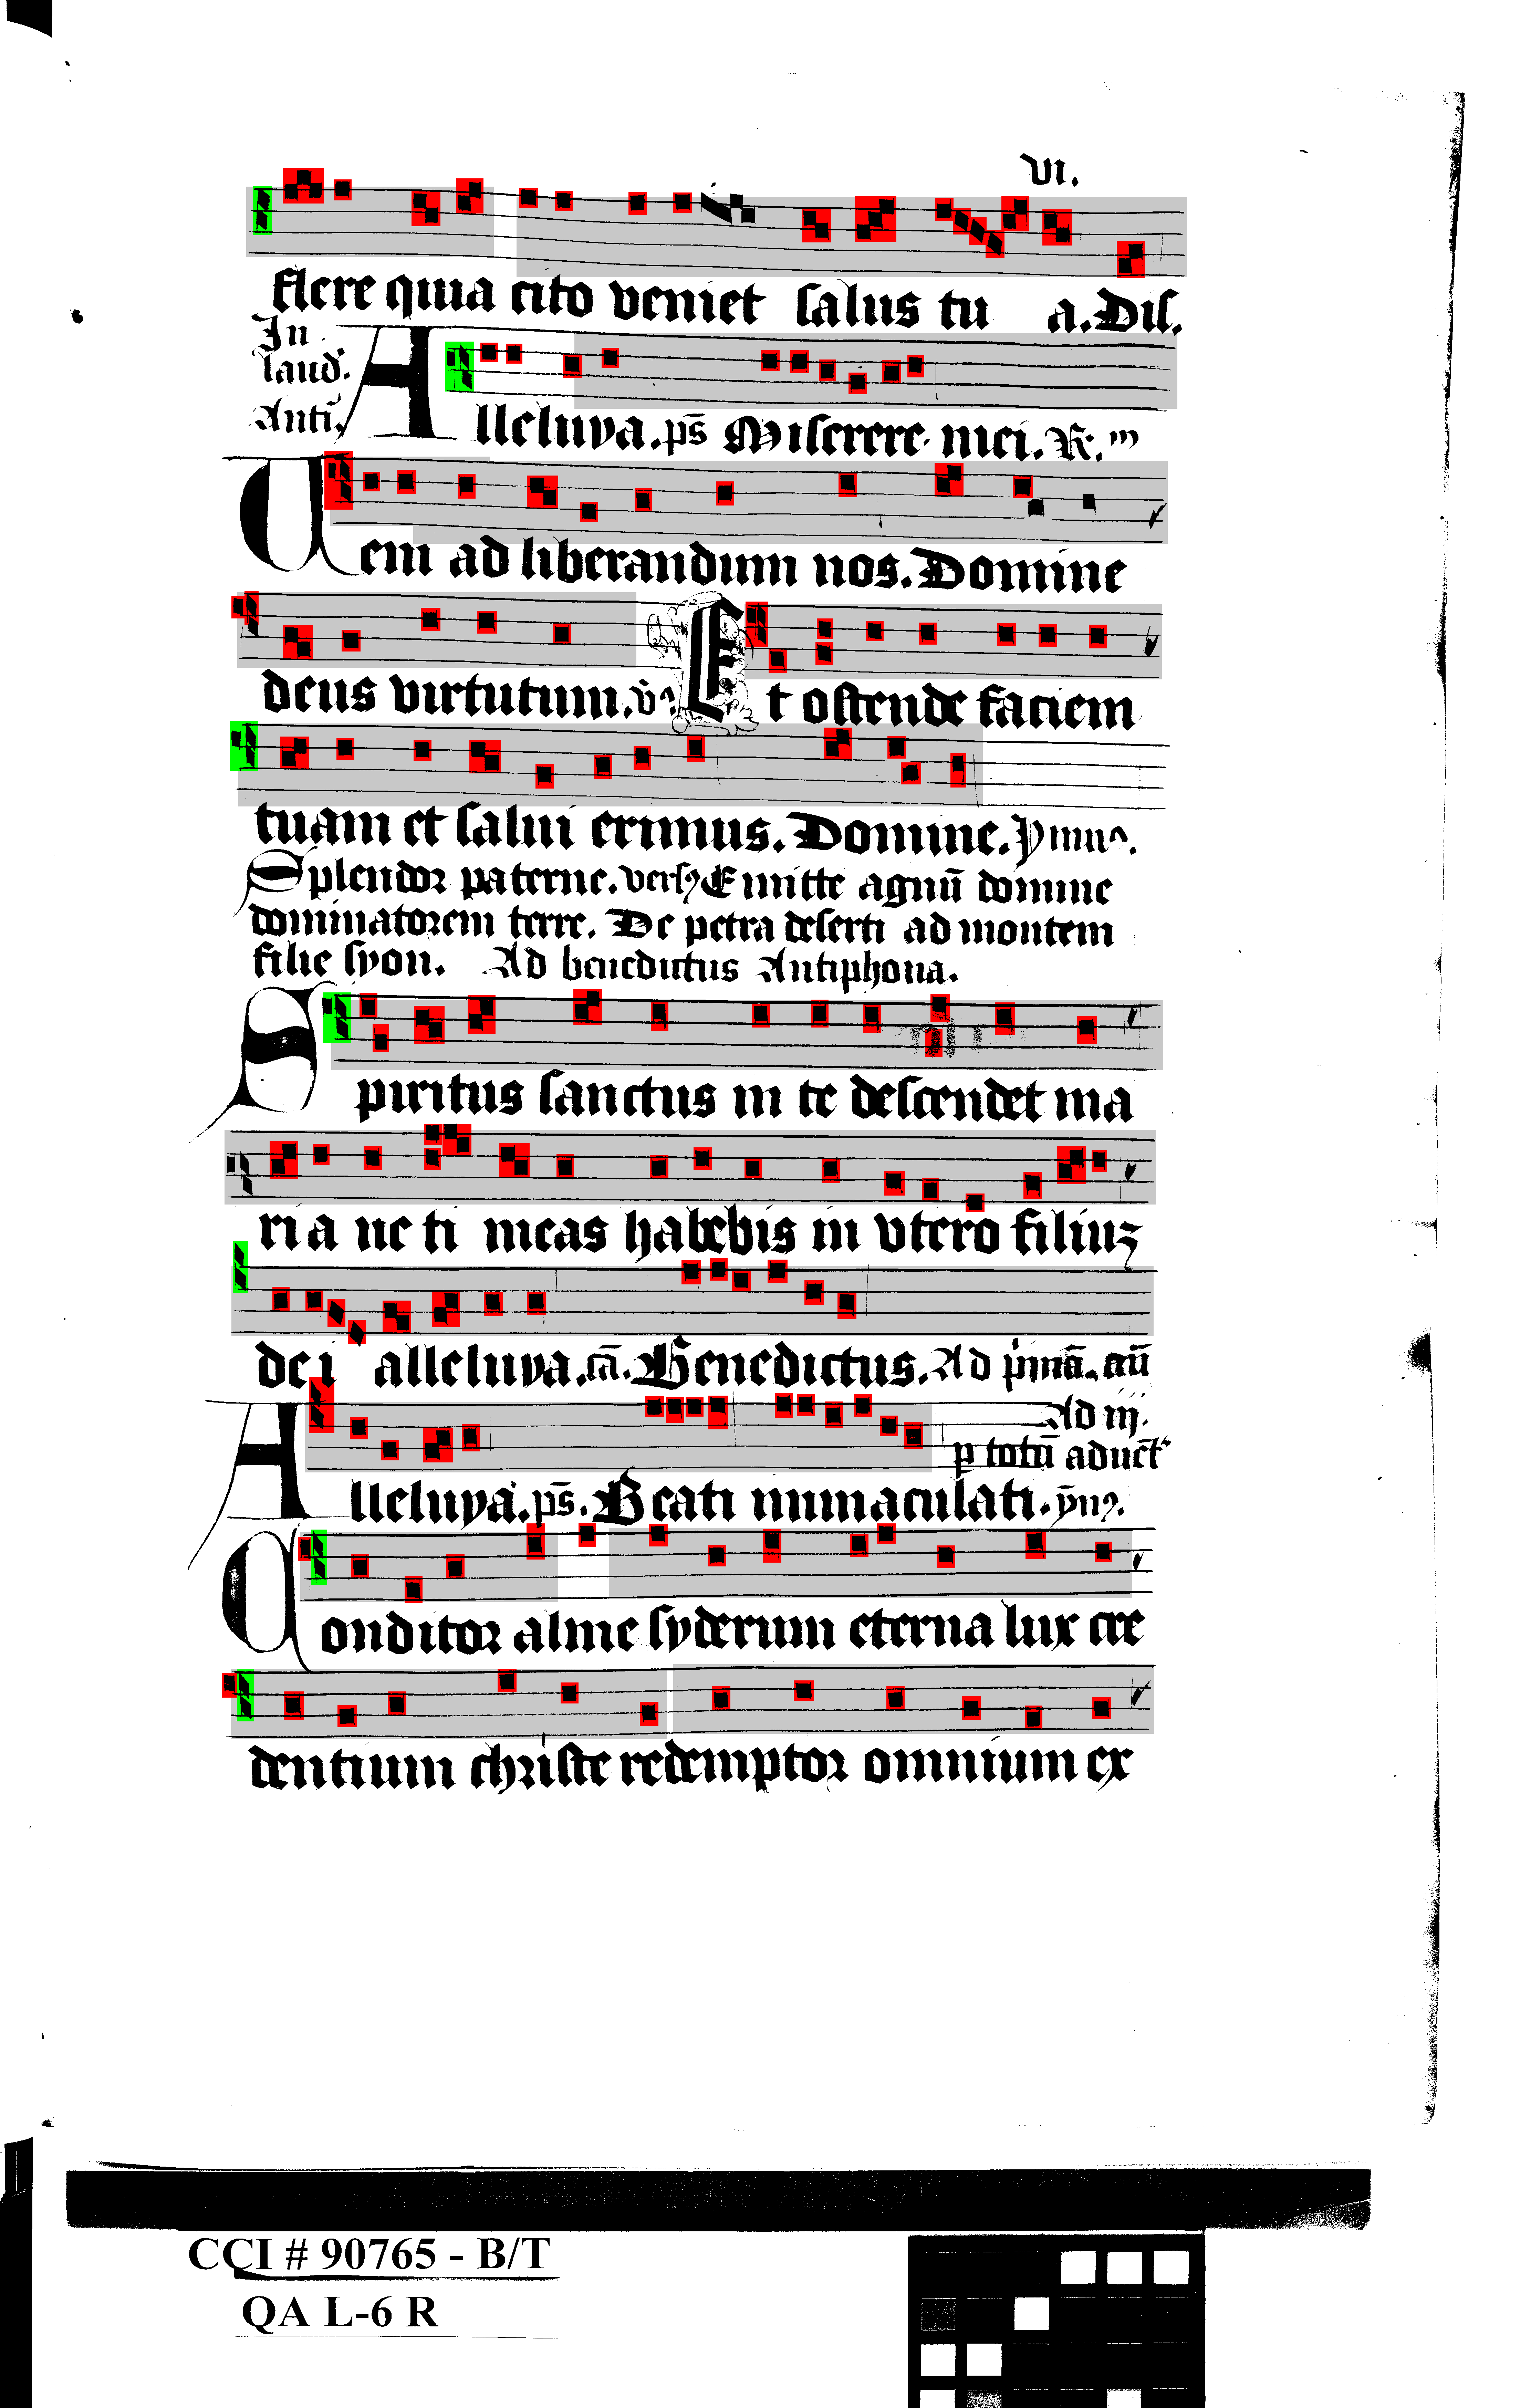 vi.
flere quia cito veniet salus tu a. Dis.
In
laud.
Anti.
Alleluya. ps Miserere mei. R. m
Veni ad liberandum nos. Domine
deus virtutum. v. Et ostende faciem
tuam et salui erimus. Domine. ymnus.
Splendor paterne. vers. Emitte agnū domine
dominatorem terre. De petra deserti ad montem
filie syon. Ad benedictus Antiphona.
Spiritus sanctus in te descendet ma
ria ne ti meas habebis in vtero filiuz
dei alleluya. cā. Benedictus. Ad primā. an̄
Ad iij.
p totū aduēt
Alleluya. ps. Beati inmaculati. yn9.
Conditor alme syderum eterna lux cre
dentium christe redemptor omnium ex
CCI # 90765 - B/T
QA L-6 R